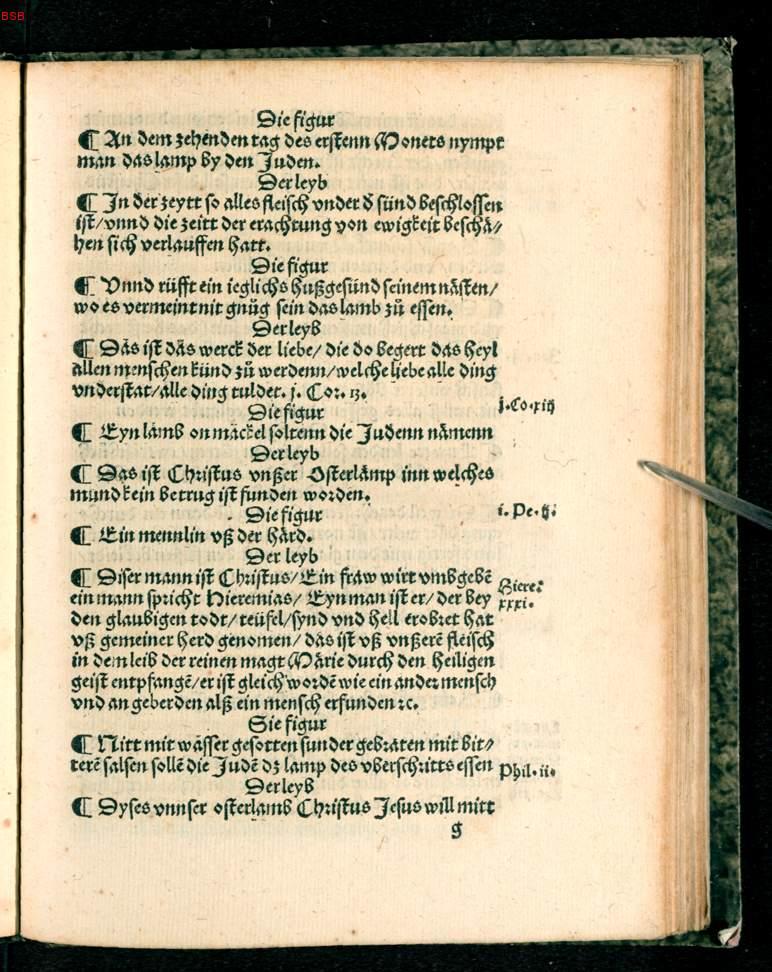 BSB
Die figur
¶ An dem zehenden tag des erstenn Monets nympt
man das lamp by den Juden.
Der leyb
¶ In der zeytt so alles fleisch vnder d̄ sünd beschlossen
ist/vnnd die zeitt der erachtung von ewigkeit beschä⸗
hen sich verlauffen hatt.
Die figur
¶ Vnnd rüfft ein ieglichs hußgesünd seinem nästen/
wo es vermeint nit gnüg sein das lamb zů essen.
Der leyb
¶ Das ist das werck der liebe/ die do begert das heyl
allen menschen künd zů werdenn/welche liebe alle ding
vnderstat/alle ding tuldet. j. Cor. 13.
j.Co.xiij
Die figur
¶ Eyn lamb on mackel soltenn die Judenn nämenn
Der leyb
¶ Das ist Christus vnßer Osterlämp inn welches
mund kein betrug ist funden worden.
Die figur
i. Pe. ij.
¶ Ein mennlin vß der härd.
Der leyb
¶ Diser mann ist Christus/ Ein fraw wirt vmbgebē
ein mann spricht Hieremias/ Eyn man ist er/ der bey
Hiere.
xxxi.
den glaubigen todt/ teüfel/synd vnd hell erobret hat
vß gemeiner herd genomen/ das ist vß vnßerē fleisch
in dem leib der reinen magt Marie durch den heiligen
geist entpfangē/er ist gleich wordē wie ein ander mensch
vnd an geberden alß ein mensch erfunden ꝛc.
Sie figur
¶ Nitt mit wasser gesotten sunder gebraten mit bit⸗
terē salsen sollē die Judē dz lamp des vberschritts essen
Phil. ii.
Der leyb
¶ Dyses vnnser osterlamb Christus Jesus will mitt
g